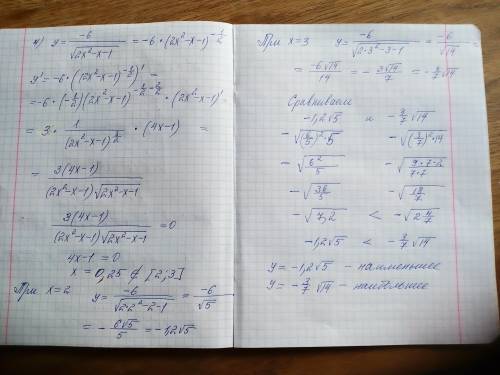 4) y = -6/√(2x²-x-1) = -6·(2x²-x-1)^(-1/2)
y' = -6·((2x²-x-1)^(-1/2))' =
= -6·(-1/2)(2x²-x-1)^(-1/2-2/2)·(2x²-x-1)' =
= 3·1/(2x²-x-1)^(3/2)·(4x-1) =
= 3(4x-1)/((2x²-x-1)√(2x²-x-1))
3(4x-1)/((2x²-x-1)√(2x²-x-1)) = 0
4x-1 = 0
x = 0,25 ∉ [2;3]
При x=2 y = -6/√(2·2²-2-1) = -6/√5
= -6√5/5 = -1,2√5
При x=3 y = -6/√(2·3²-3-1) = -6/√14 =
= -6√14/14 = -3√14/7 = -3/7√14
Сравниваем
-1,2√5 и -3/7√14
-√((6/5)²·5) -√((3/7)²·14)
-√(6²/5) -√(9·7·2/7·7)
-√(36/5) -√(18/7)
-√7,2 < -√(2 4/7)
-1,2√5 < -3/7√14
y = -1,2√5 - наименьшее
y = -3/7√14 - наибольшее